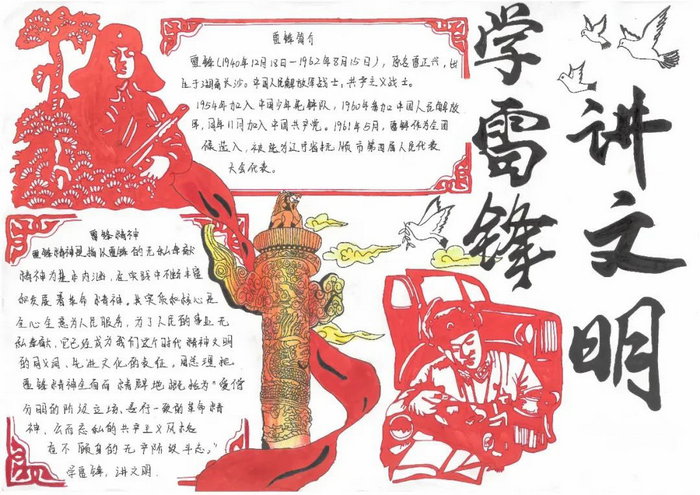 学雷锋
讲文明
雷锋简介
雷锋(1940年12月18日—1962年8月15日),原名雷正兴,出
生于湖南长沙。中国人民解放军战士,共产主义战士。
1954年加入中国少年先锋队,1960年参加中国人民解放
军,同年11月加入中国共产党。1961年5月,雷锋作为全团
候选人,被选为辽宁省抚顺市第四届人民代表
大会代表。
雷锋精神
雷锋精神是指以雷锋的无私奉献
精神为基本内涵,在实践中不断丰富
和发展着革命精神。其实质和核心是
全心全意为人民服务,为了人民的事业无
私奉献,它已经成为我们这个时代精神文明
的同义词、先进文化的表征。周恩来把
雷锋精神全面而精辟地概括为"爱憎
分明的阶级立场、言行一致的革命精
神、公而忘私的共产主义风格
奋不顾身的无产阶级斗志。"
学雷锋,讲文明.